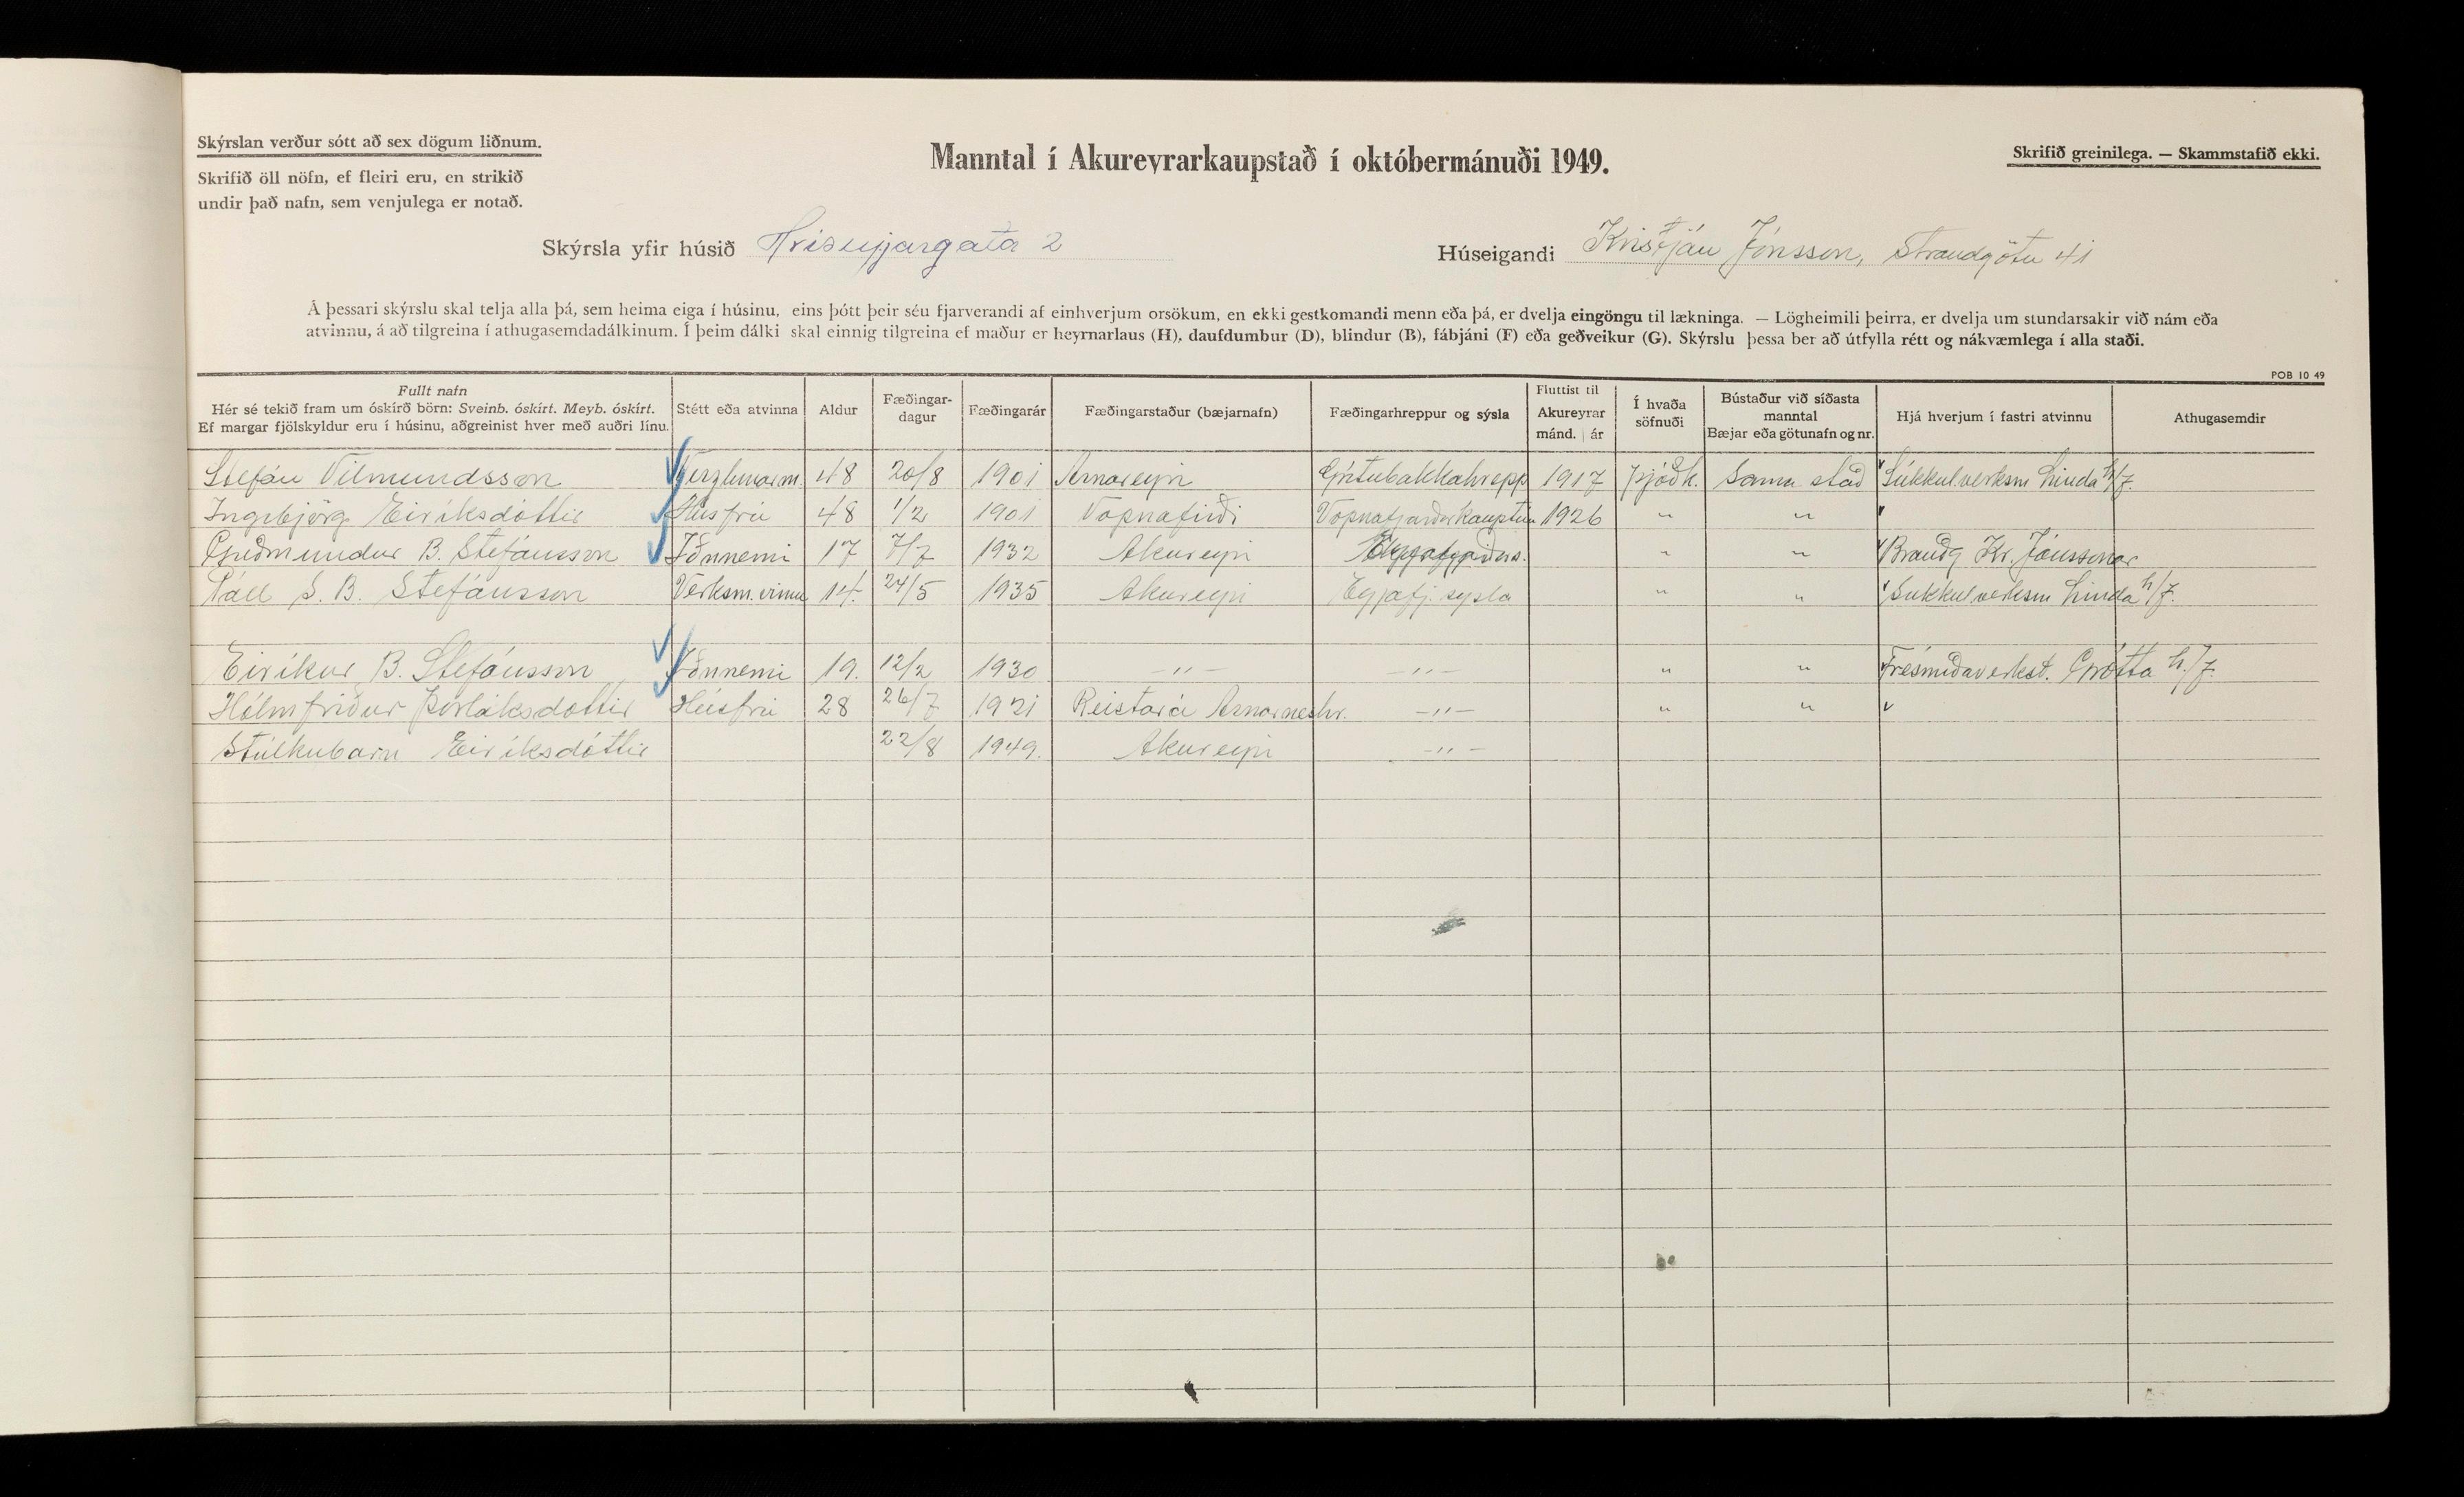 Skýrslan verður sótt að sex dögum liðnum.
Skrifið öll nöfn, ef fleiri eru, en strikið
undir það nafn, sem venjulega er notað.
Manntal í Akureyrarkaupstað í októbermánuði 1949.
Skrifið greinilega. — Skammstafið ekki.
Skýrsla yfir húsið Hríseyjargata 2
Húseigandi Kristján Jónsson, Strandgötu 41
Á þessari skýrslu skal telja alla þá, sem heima eiga í húsinu, eins þótt þeir séu fjarverandi af einhverjum orsökum, en ekki gestkomandi menn eða þá, er dvelja eingöngu til lækninga. — Lögheimili þeirra, er dvelja um stundarsakir við nám eða
atvinnu, á að tilgreina í athugasemdadálkinum. Í þeim dálki skal einnig tilgreina ef maður er heyrnarlaus (H), daufdumbur (D), blindur (B), fábjáni (F) eða geðveikur (G). Skýrslu þessa ber að útfylla rétt og nákvæmlega í alla staði.
POB 10 49
Fullt nafn
Hér sé tekið fram um óskírð börn: Sveinb. óskírt. Meyb. óskírt.
Ef margar fjölskyldur eru í húsinu, aðgreinist hver með auðri línu.
Stétt eða atvinna
Aldur
Fæðingar-
dagur
Fæðingarár
Fæðingarstaður (bæjarnafn)
Fæðingarhreppur og sýsla
Fluttist til
Akureyrar
mánd. | ár
Í hvaða
söfnuði
Bústaður við síðasta
manntal
Bæjar eða götunafn og nr.
Hjá hverjum í fastri atvinnu
Athugasemdir
Stefán Vilmundsson 48 20/8 1901 Arnareyri Grítubakkahrepp 1917 Þjóðk. Sama stað Súkkulverksm Linda h/f.
Ingibjörg Eiríksdóttir Húsfrú 48 1/2 1901 Vopnafirði Vopnafjarðarkauptún 1926 " "
Guðmundur B. Stefánsson Iðnnemi 17 7/7 1932 Akureyri " " Braudg Kr. Jónssonar
Páll S. B. Stefánsson Verksm.vinna 14. 24/5 1935 Akureyri Eyjafj. sýsla " " Súkkulverksm Linda h/f.
Eiríkur B. Stefánsson Iðnnemi 19. 12/2 1930 –"– –"– " " Trésmíðaverkst. Grótta h/f.
Hólmfríður Þorláksdóttir Húsfrú 28 26/7 1921 Reistará Arnarneshr. –"– " "
Stúlkubarn Eiríksdóttir 22/8 1949. Akureyri –"–